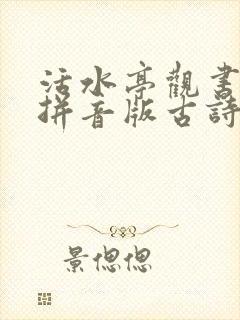 活水亭觀書
拼音版古詩
景偲偲